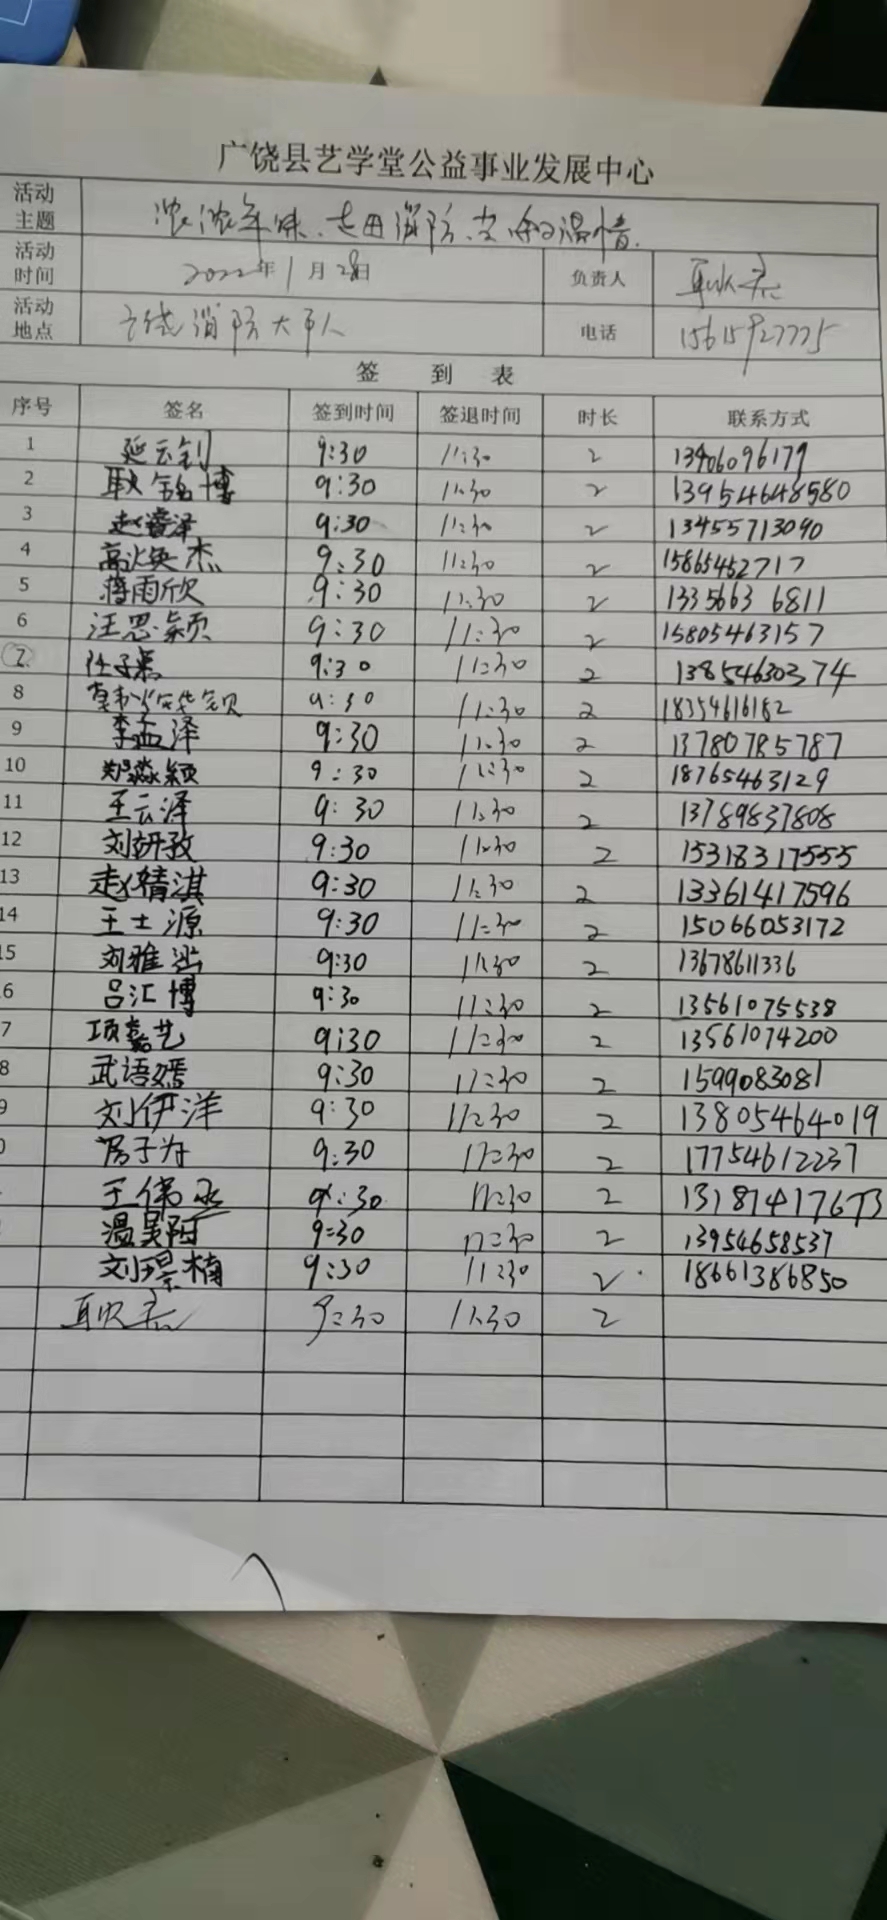 广饶县艺学堂公益事业发展中心
活动主题 浓浓年味、走田消防、
活动时间 2022年1月28日 负责人 耿
活动地点 消防大队 电话 15615927775
签 到 表
序号 签名 签到时间 签退时间 时长 联系方式
1 延云钊 9:30 11:30 2 13406096179
2 耿铭博 9:30 11:30 2 13954648580
3 赵睿泽 9:30 11:30 2 13455713090
4 高焕杰 9:30 11:30 2 15865452717
5 蒋雨欣 9:30 11:30 2 13356636811
6 汪思颖 9:30 11:30 2 15805463157
7 任子熹 9:30 11:30 2 13854630374
8 9:30 11:30 2 18354616182
9 李孟泽 9:30 11:30 2 13780785787
10 郑淼颖 9:30 11:30 2 18765463129
11 王云泽 9:30 11:30 2 13789837808
12 刘妍孜 9:30 11:30 2 15318317555
13 赵精淇 9:30 11:30 2 13361417596
14 王士源 9:30 11:30 2 15066053172
15 刘雅 9:30 11:30 2 13678611336
6 吕汇博 9:30 11:30 2 13561075538
7 项嘉艺 9:30 11:30 2 13561074200
8 武语嫣 9:30 11:30 2 1599083081
9 刘伊洋 9:30 11:30 2 13805464019
0 房子为 9:30 11:30 2 17754612237
王伟丞 9:30 11:30 2 13181417673
温昊阳 9:30 11:30 2 13954658537
刘璟楠 9:30 11:30 2 18661386850
耿 9:30 11:30 2